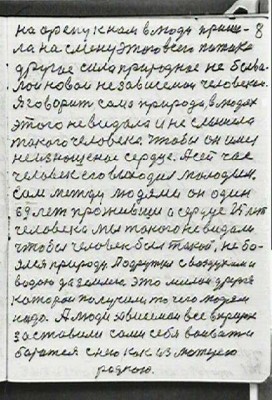 на арену к нам в люди пришла 8
ла на смену этого всего потока
другое сила природное не быва
лой новой независимой человеком.
Я говорит сама природа, в людях
этого не видала и не слышала
такого человека чтобы он имел
неизношеное сердце. А сей час
человек его выходил молодым.
сам между людями он один
69 лет проживши а сердце 25 лет
человека мы такого не видали
чтобы человек был такой, не бо-
ялся природу. Подружил с воздухом и
водою да землею. это милой друзья
которои получили то чего людям
надо. А люди зависемои все
заставили сами себя воевать и
боротся с нею как из лютую